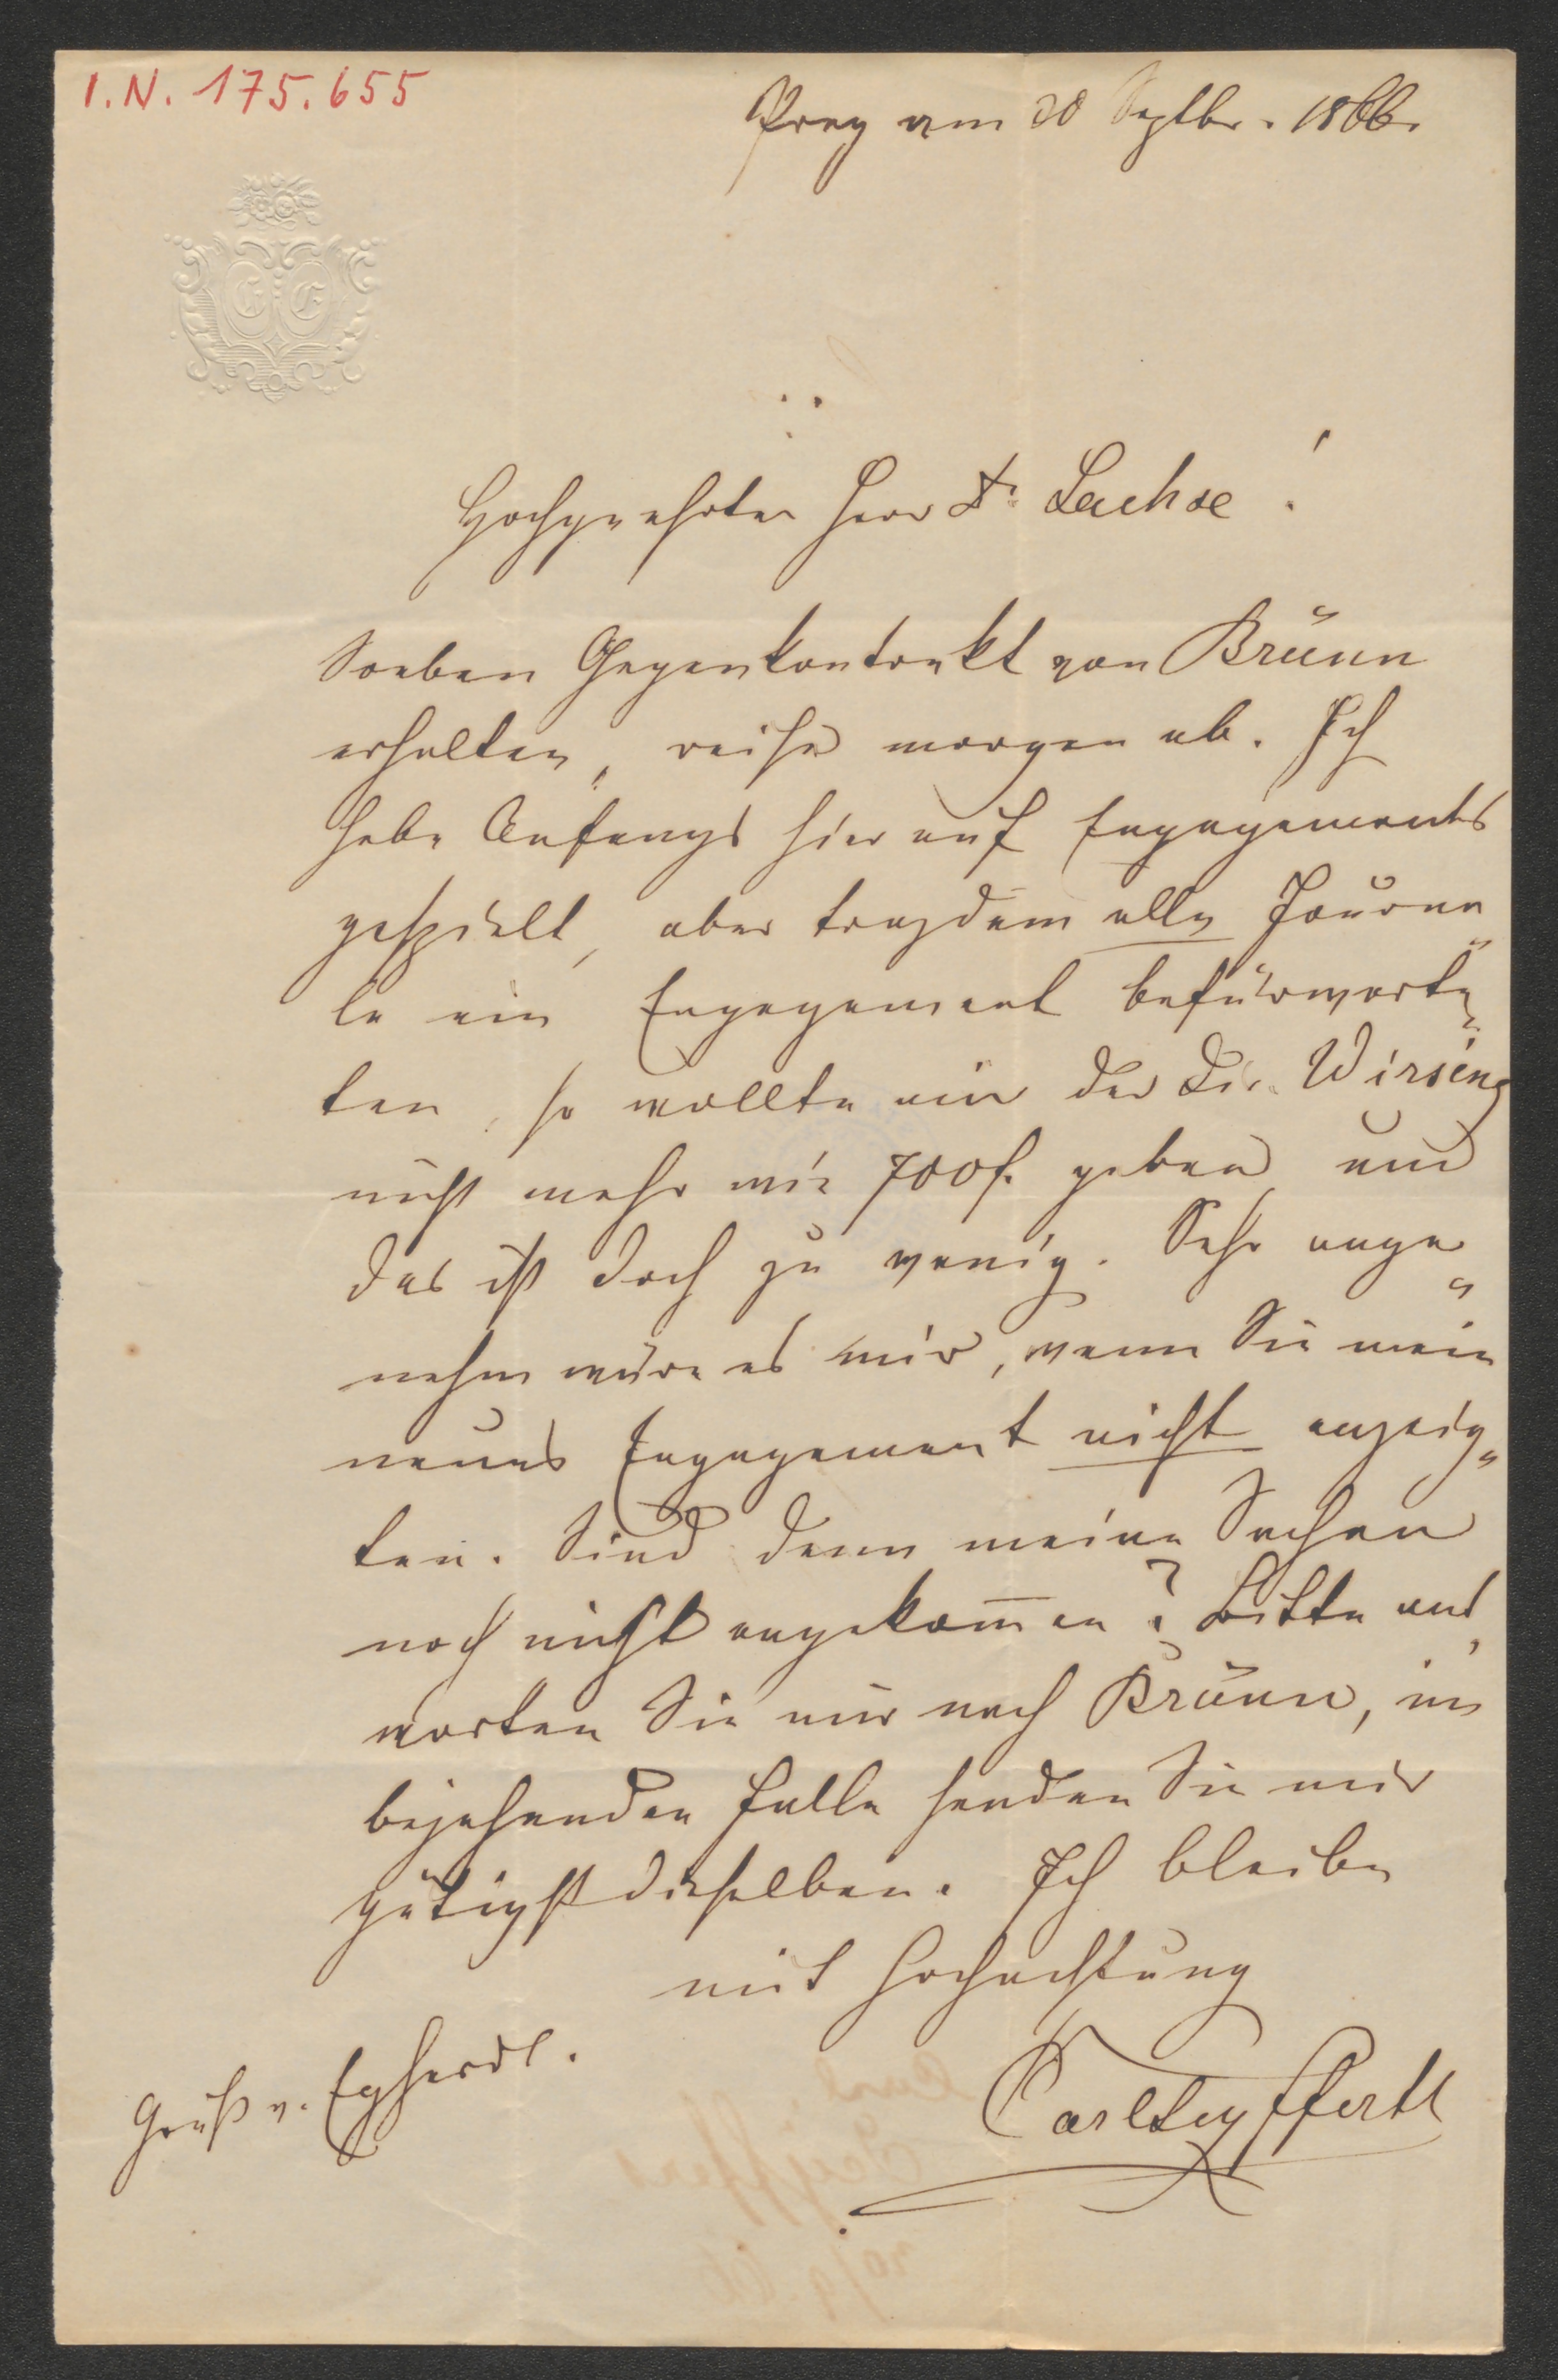 I.N. 175.655
Prag am 20 Septbr. 1866.
Hochgeehrter Herr Dr. Sachse!
Soeben Gegenkontrakt von Brünn
erhalten, reise morgen ab. Ich
habe Anfangs hier auf Engagements
gespielt, aber trozdem alle Journa„
le ein Engagement befürworte„
ten, so wollte mir der Dir. Wirsing
nicht mehr wie 700 f. geben und
das ist doch zu wenig. Sehr ange„
nehm wäre es mir, wenn Sie mein
neues Engagement nicht anzeig„
ten. Sind denn meine Sachen
noch nicht angekom̄en? Bitte ant„
worten Sie mir nach Brünn, im
bejahenden Falle senden Sie mir
gütigst dieselben. Ich bleibe
mit Hochachtung
Carl Seyffertt
Gruß v. Eghardt.